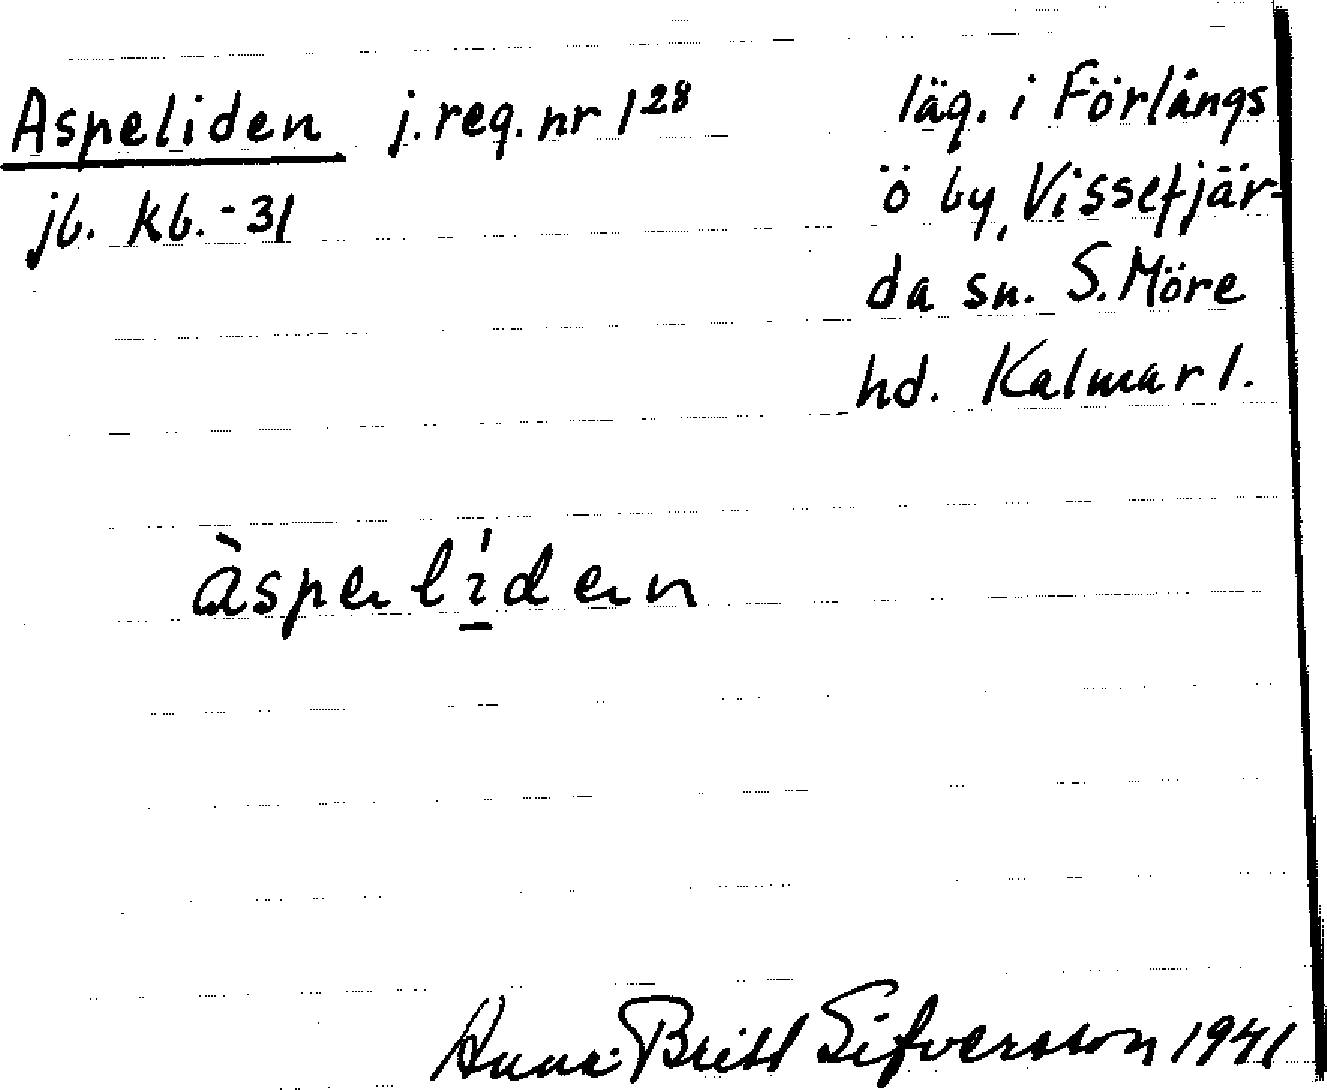 Aspeliden j.reg.nr 1²⁸
jb. kb.-31
läg. i Förlångs
ö by, Vissefjär-
da sn. S. Möre
hd. Kalmar l.
àspelíden
Anna-Britt Sifversson 1941